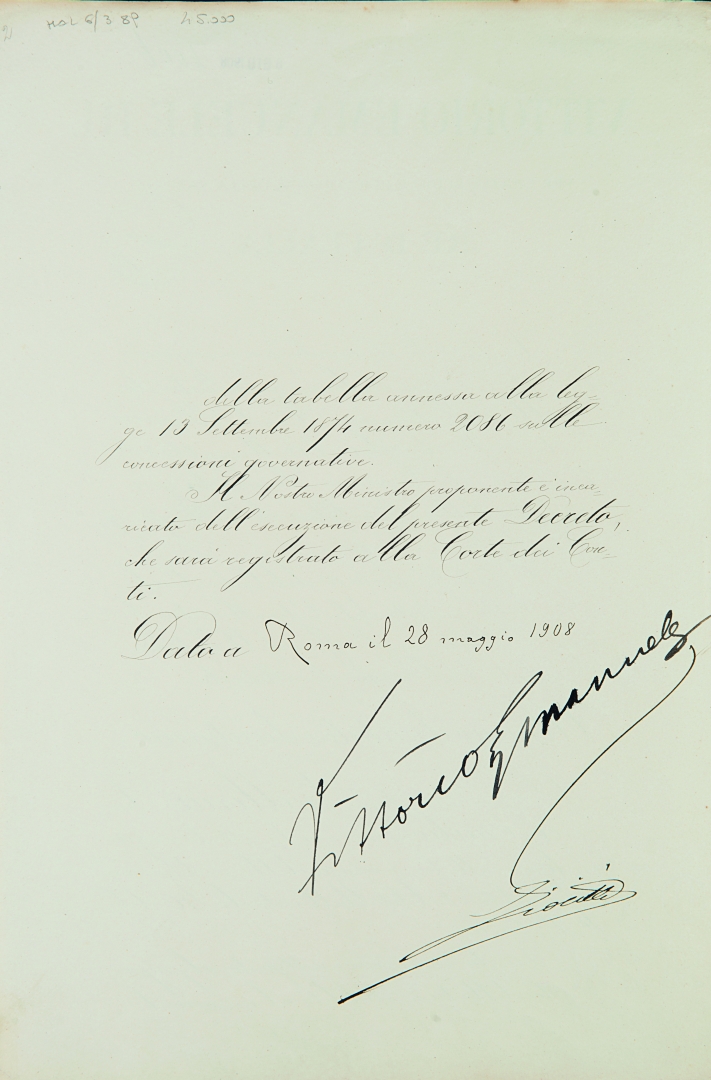 MOL 6/3 89 45.000
2
della tabella annessa alla leg-
ge 13 Settembre 1874 numero 2086 sulle
concessioni governative.
Il Nostro Ministro proponente è inca-
ricato dell'esecuzione del presente Decreto,
che sarà registrato alla Corte dei Con-
ti.
Dato a Roma il 28 maggio 1908
Vittorio Emanuele
Giolitti